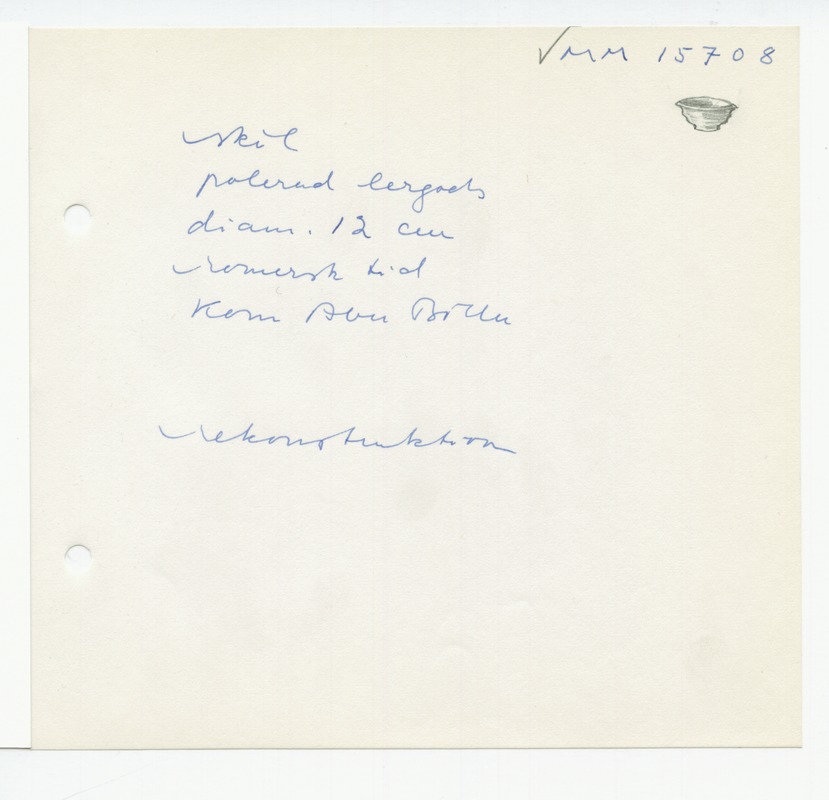 √MM 15708
skål
polerad lergods
diam. 12 cm
romersk tid
Kom Abu Billu
rekonstruktion